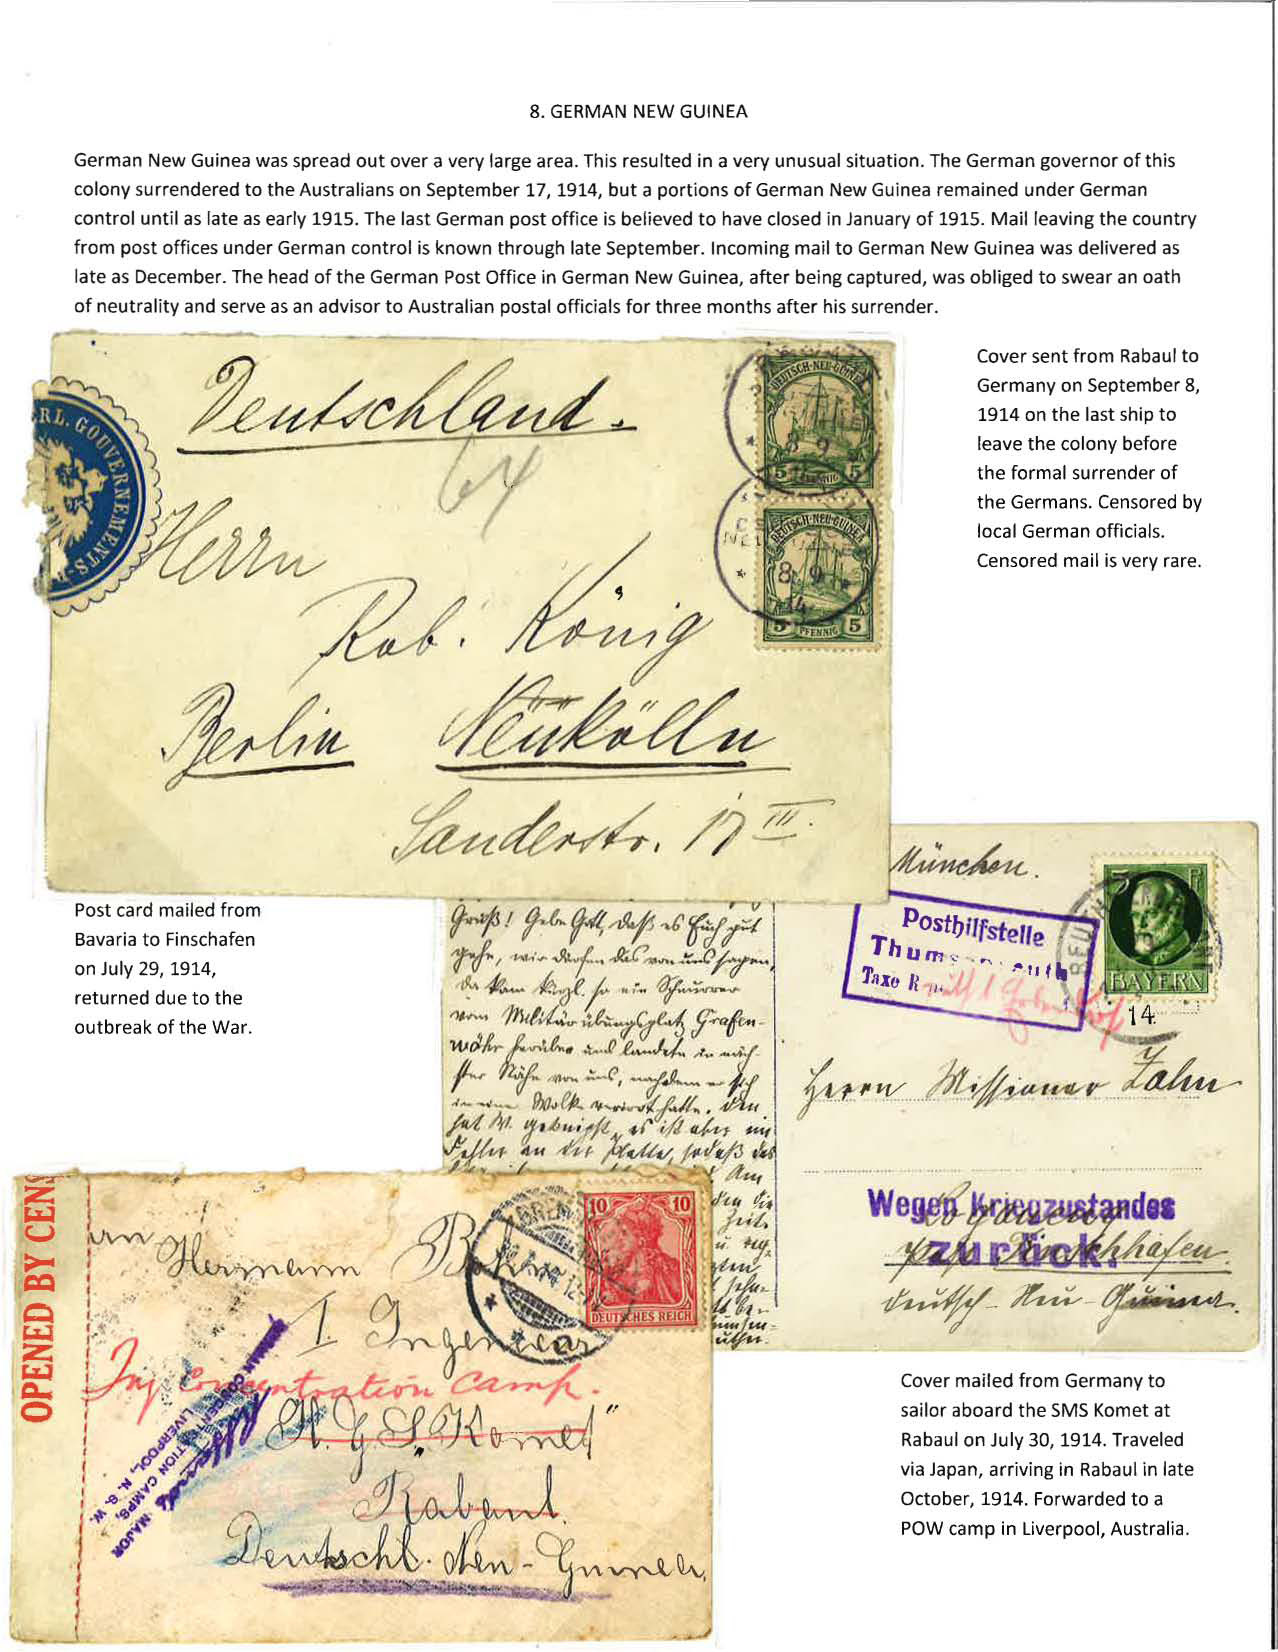 8. GERMAN NEW GUINEA
German New Guinea was spread out over a very large area. This resulted in a very unusual situation. The German governor of this
colony surrendered to the Australians on September 17, 1914, but a portions of German New Guinea remained under German
control until as late as early 1915. The last German post office is believed to have closed in January of 1915. Mail leaving the country
from post offices under German control is known through late September. Incoming mail to German New Guinea was delivered as
late as December. The head of the German Post Office in German New Guinea, after being captured, was obliged to swear an oath
of neutrality and serve as an advisor to Australian postal officials for three months after his surrender.
Deutschland.
64
Herrn
Rob. König
Berlin Neukölln
Sanderstr. 17 III.
GOUVERNEMENTS
DEUTSCH-NEU-GUINEA
5 PFENNIG 5
8 9
14
DEUTSCH-NEU-GUINEA
5 PFENNIG 5
8 9
14
Cover sent from Rabaul to
Germany on September 8,
1914 on the last ship to
leave the colony before
the formal surrender of
the Germans. Censored by
local German officials.
Censored mail is very rare.
Post card mailed from
Bavaria to Finschafen
on July 29, 1914,
returned due to the
outbreak of the War.
Gruß! Gebe Gott, daß es Euch gut
gehe, wir dürfen das von uns sagen,
Da kam kürzl. so ein Schnurrer
vom Militärübungsplatz Grafen-
wöhr herüber und landete in näch-
ster Nähe von uns, nachdem er sich
in eine Wolke verirrt hatte. Den
hat W. geknipst, es ist aber ein
Fehler an der Platte, sodaß das
Am
München.
Posthilfstelle
Thums
Taxe
5 Pf
BAYERN
14
Herrn Missionar Zahn
Wegen Kriegzustandes
zurück.
Logaweng
Finschhafen
Deutsch-Neu-Guinea.
OPENED BY CENS
Hermann
I. Ingenieur
In Concentration Camp.
"Komet"
Rabaul
Deutschl. Neu-Guinea
10 10
DEUTSCHES REICH
BREMEN
CONCENTRATION CAMPS,
LIVERPOOL, N. S. W.
MAJOR
Cover mailed from Germany to
sailor aboard the SMS Komet at
Rabaul on July 30, 1914. Traveled
via Japan, arriving in Rabaul in late
October, 1914. Forwarded to a
POW camp in Liverpool, Australia.